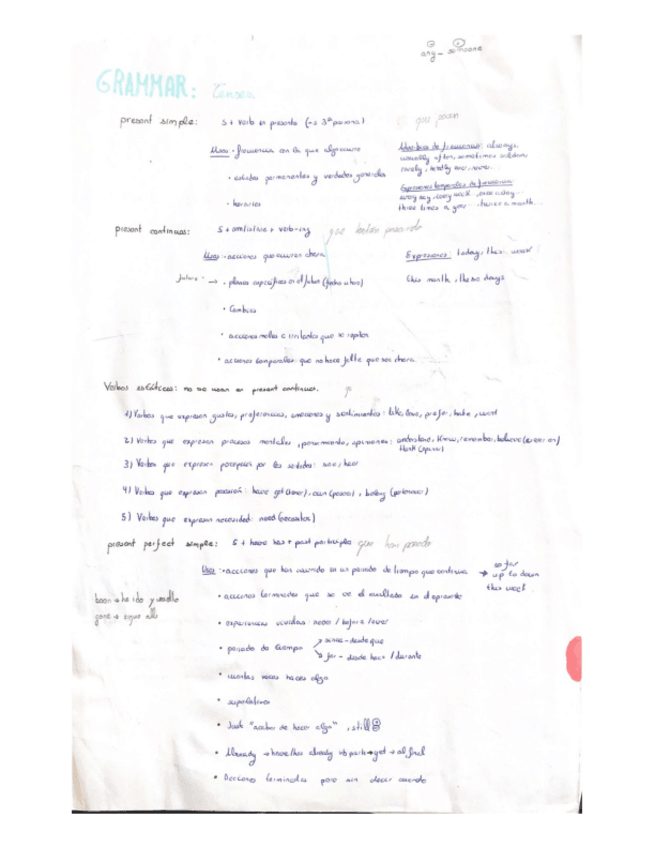 any - someone
GRAMMAR: Tenses
present simple: S + verb en presente (-s 3ª persona) que pasan
Usos - frecuencia con la que algo ocurre
Adverbios de frecuencia: always,
usually, often, sometimes, seldom,
rarely, hardly ever, never...
• estados permanentes y verdades generales
Expresiones temporales de frecuencia:
every day, every week, once a day...
three times a year... twice a month...
• horarios
present continuous: S + am/is/are + verb-ing
Usos: - acciones que ocurren ahora
Expresiones: today, this week
this month, these days
futuro → • planes específicos en el futuro
• Cambios
• acciones molestas o irritantes que se repiten
• acciones temporales que no hace falta que sea ahora
Verbos estáticos: no se usan en present continuous.
1) Verbos que expresen gustos, preferencias, emociones y sentimientos: like, love, prefer, hate, want
2) Verbos que expresan procesos mentales, pensamiento, opiniones: understand, know, remember, believe (creer en)
think (opinar)
3) Verbos que expresen percepción por los sentidos: see, hear
4) Verbos que expresan posesión: have got (tener), own (poseer), belong (pertenecer)
5) Verbos que expresan necesidad: need (necesitar)
present perfect simple: S + have has + past participle que han pasado
Usos: - acciones que han ocurrido en un periodo de tiempo que continua →
so far
up to
this week
been → ha ido y vuelto
gone → sigue allí
• acciones terminadas que se ve el resultado en el presente
• experiencias vividas: never / before / ever
• periodo de tiempo
since - desde que
for - desde hace / durante
• cuantas veces haces algo
• superlativos
• Just "acabar de hacer algo", still
• Already → have/has already vb partc yet → al final
• Acciones terminadas pero sin decir cuando